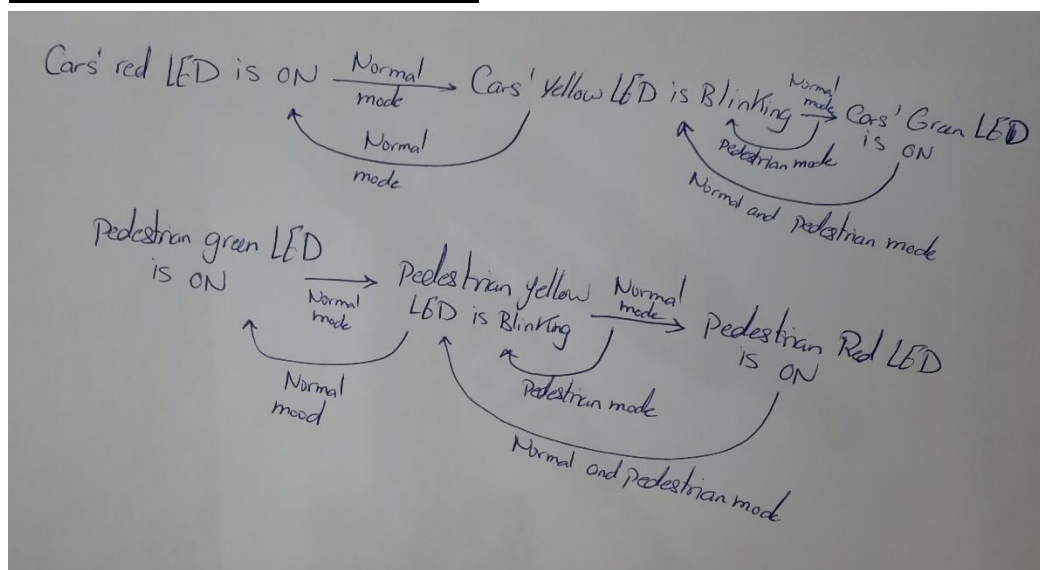 Cars' red LED is ON
Normal
mode
Cars' Yellow LED is Blinking
Normal
mode
Cars' Green LED
is ON
Normal
mode
Pedestrian mode
Normal and pedestrian mode
Pedestrian green LED
is ON
Normal
mode
Pedestrian yellow
LED is Blinking
Normal
mode
Pedestrian Red LED
is ON
Normal
mood
Pedestrian mode
Normal and pedestrian mode